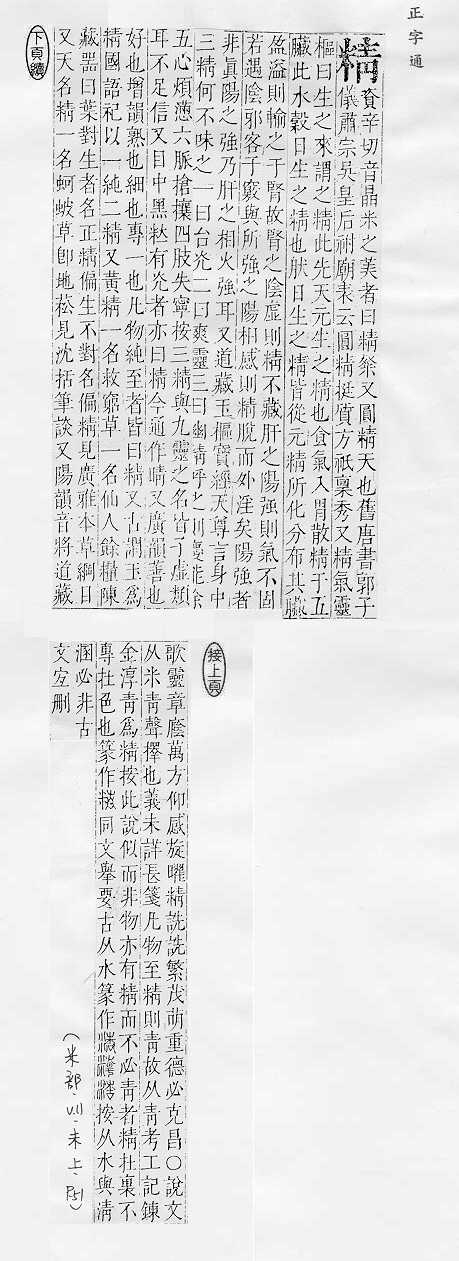 正字通
精
資辛切音晶米之美者曰精粲又圓精天也舊唐書郭子
儀肅宗吳皇后祔廟表云圓精挺質方祇稟秀又精氣靈
樞曰生之來謂之精此先天元生之精也食氣入胃散精于五
臟此水穀日生之精也然日生之精皆從元精所化分布其臟
盈溢則輸之于腎故腎之陰虛則精不藏肝之陽強則氣不固
若遇陰邪客于竅與所強之陽相感則精脫而外淫矣陽強者
非眞陽之強乃肝之相火強耳又道藏玉樞寶經天尊言身中
三精何不味之一曰台光二曰爽靈三曰幽精呼之則
五心煩懣六脈搶攘四肢失寧按三精與九靈之名皆子虛類
耳不足信又目中黑粒有光者亦曰精今通作睛又廣韻善也
好也增韻熟也細也專一也凡物純至者皆曰精又古謂玉爲
精國語祀以一純二精又黃精一名救窮草一名仙人餘糧陳
藏器曰葉對生者名正精偏生不對名偏精見廣雅本草綱目
又天名精一名蚵蚾草卽地菘見沈括筆談又陽韻音將道藏
下頁續
接上頁
歌靈章廕萬方仰感旋曜精詵詵繁茂萌重德必克昌〇說文
从米靑聲擇也義未詳長箋凡物至精則靑故从靑考工記鍊
金淳靑爲精按此說似而非物亦有精而不必靑者精在裏不
專在色也篆作同文舉要古从水篆作按从水與淸
溷必非古
文宜刪
(米部·VII·未上·P51)